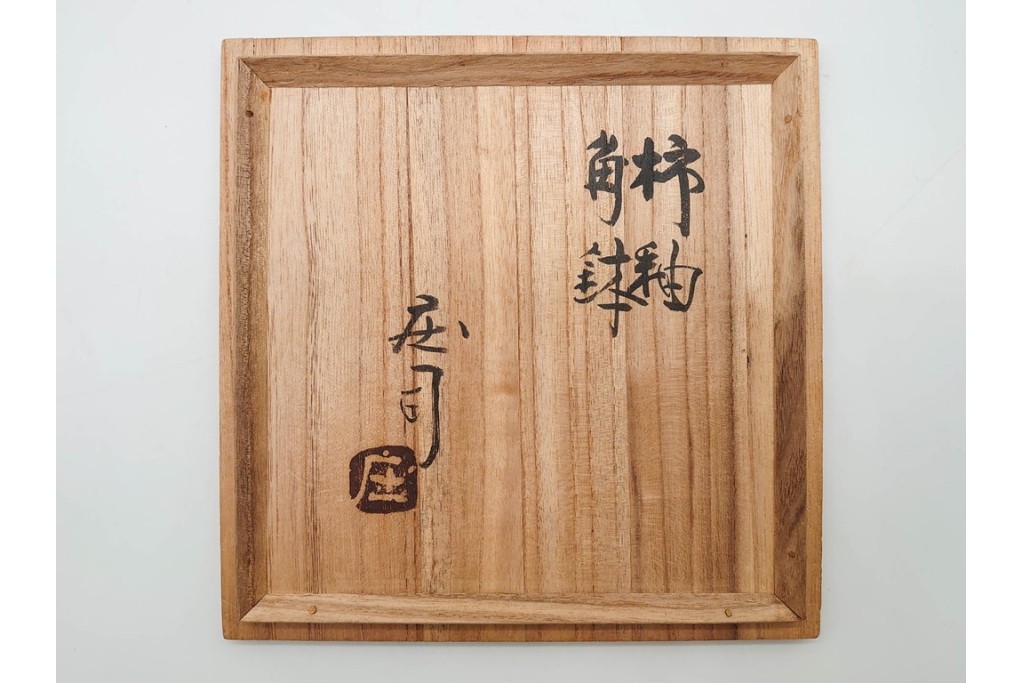 柿釉
角鉢
庄司
庄